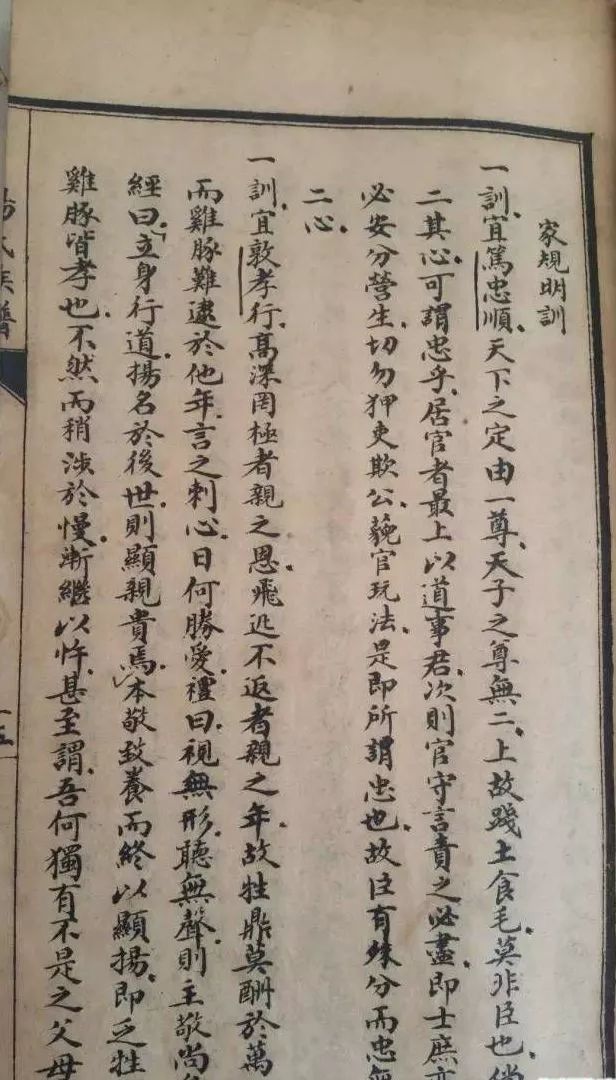 家規明訓
一訓、宜篤忠順、天下之定由一尊、天子之尊無二上、故踐土食毛、莫非臣也、倘
二其心、可謂忠乎、居官者最上以道事君、次則官守言責之必盡、即士庶亦
必安分營生、切勿狎吏欺公、藐官玩法、是即所謂忠也、故臣有殊分而忠無
二心、
一訓、宜敦孝行、高深罔極者親之恩、飛迅不返者親之年、故牲鼎莫酬於萬
而雞豚難逮於他年、言之刺心、日何勝愛、禮曰、視無形、聽無聲、則主敬尚
經曰、立身行道、揚名於後世、則顯親貴焉、本敬致養而終以顯揚、即乏牲
雞豚皆孝也、不然而稍涉於慢、漸繼以忤、甚至謂、吾何獨有不是之父母
氏族譜
十五